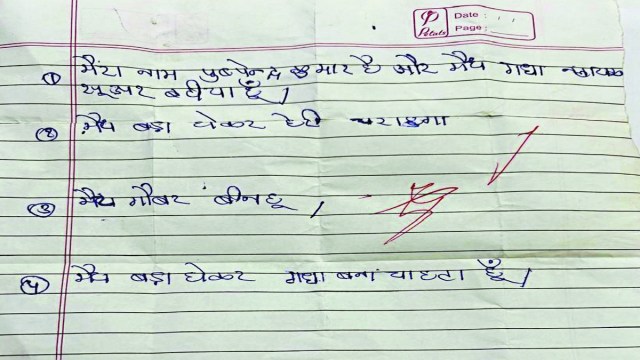 Date :
Page :
① मैरा नाम पुष्पेन्द्र कुमार है और मैय गधा
सूअर बटीया हूँ।
② मैय बड़ा घेकर हेरी चराऊगा
③ मैय गौबर बीनहू।
④ मैय बड़ा घेकर गधा बनां चाहता हूँ।